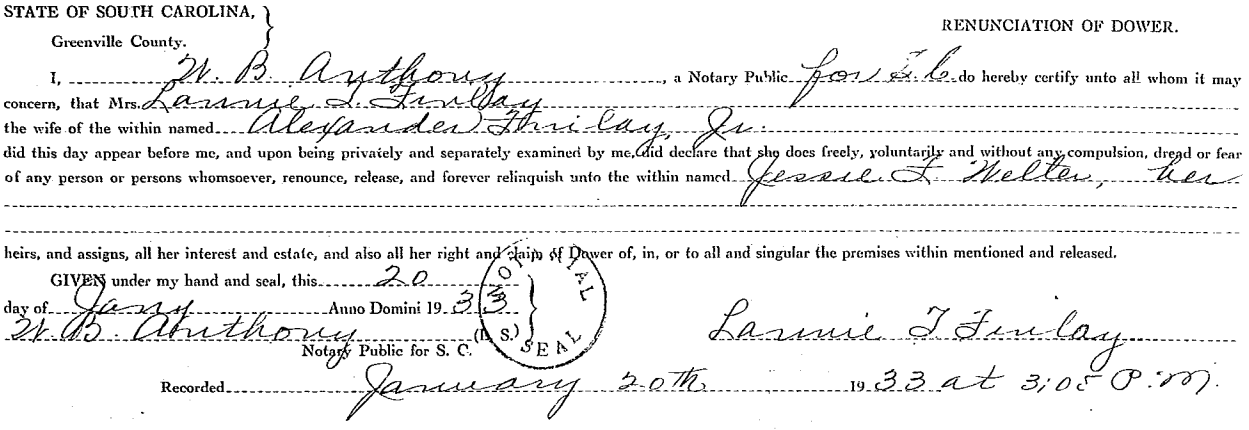 STATE OF SOUTH CAROLINA, }
RENUNCIATION OF DOWER.
Greenville County.
I, W. B. Anthony, a Notary Public for S. C. do hereby certify unto all whom it may
concern, that Mrs. Lannie T. Finlay
the wife of the within named Alexander Finlay, Jr.
did this day appear before me, and upon being privately and separately examined by me, did declare that she does freely, voluntarily and without any compulsion, dread or fear
of any person or persons whomsoever, renounce, release, and forever relinquish unto the within named Jessie F Welter, her
heirs, and assigns, all her interest and estate, and also all her right and claim of Dower of, in, or to all and singular the premises within mentioned and released.
GIVEN under my hand and seal, this 20
day of Jany Anno Domini 1933
NOTARIAL SEAL
W. B. Anthony (L. S.) }
Lannie T Finlay
Notary Public for S. C.
Recorded January 20th 1933 at 3:05 P.M.